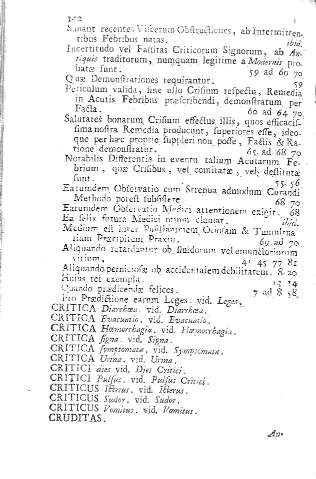 Sanant recentes Viscerum Obstructiones, ab Intermitten-
tibus Febribus natas. ibid.
Incertitudo vel Falsitas Criticorum Signorum, ab An-
tiquis traditorum, numquam legitime a Modernis pro-
batæ sunt. 59 ad 60 70
Quæ Demonstrationes requirantur. 59
Periculum valida, sine ullo Crisium respectu, Remedia
in Acutis Febribus præscribendi, demonstratum per
Facta. 60 ad 64 70
Salutares bonarum Crisium effectus illis, quos efficacis-
sima nostra Remedia producunt, superiores esse, ideo-
que per hæc proprie suppleri non posse, Factis & Ra-
tione demonstratur. 65 ad 68 70
Notabilis Differentia in eventu talium Acutarum Fe-
brium, quæ Crisibus, vel comitatæ, vel destitutæ
sunt. 55. 56
Earumdem Observatio cum Strenua admodum Curandi
Methodo potest subsistere. 68 70
Earumdem Observatio Medici attentionem exigit. 68
Ea felix futura Medici nomen clamat. ibid.
Medium est inter Pusillanimem Ociosam & Tumultua-
riam Præcipitem Praxin. 69 ad 70
Aliquando retardantur ob fluidorum vel emunctoriorum
vitium. 41 45 77 82
Aliquando perniciosæ ob accidentalem debilitatem. 8 20
Hujus rei exempla. 13 14
Quando prædicendæ felices. 7 ad 8 58
Pro Prædictione earum Leges. vid. Leges.
CRITICA Diarrhœa. vid. Diarrhœa.
CRITICA Evacuatio. vid. Evacuatio.
CRITICA Hæmorrhagia. vid. Hæmorrhagia.
CRITICA signa. vid. Signa.
CRITICA symptomata. vid. Symptomata.
CRITICA Urina. vid. Urina.
CRITICI dies vid. Dies Critici.
CRITICI Pulsus. vid. Pulsus Critici.
CRITICUS Icterus. vid. Icterus.
CRITICUS Sudor. vid. Sudor.
CRITICUS Vomitus. vid. Vomitus.
CRUDITAS.